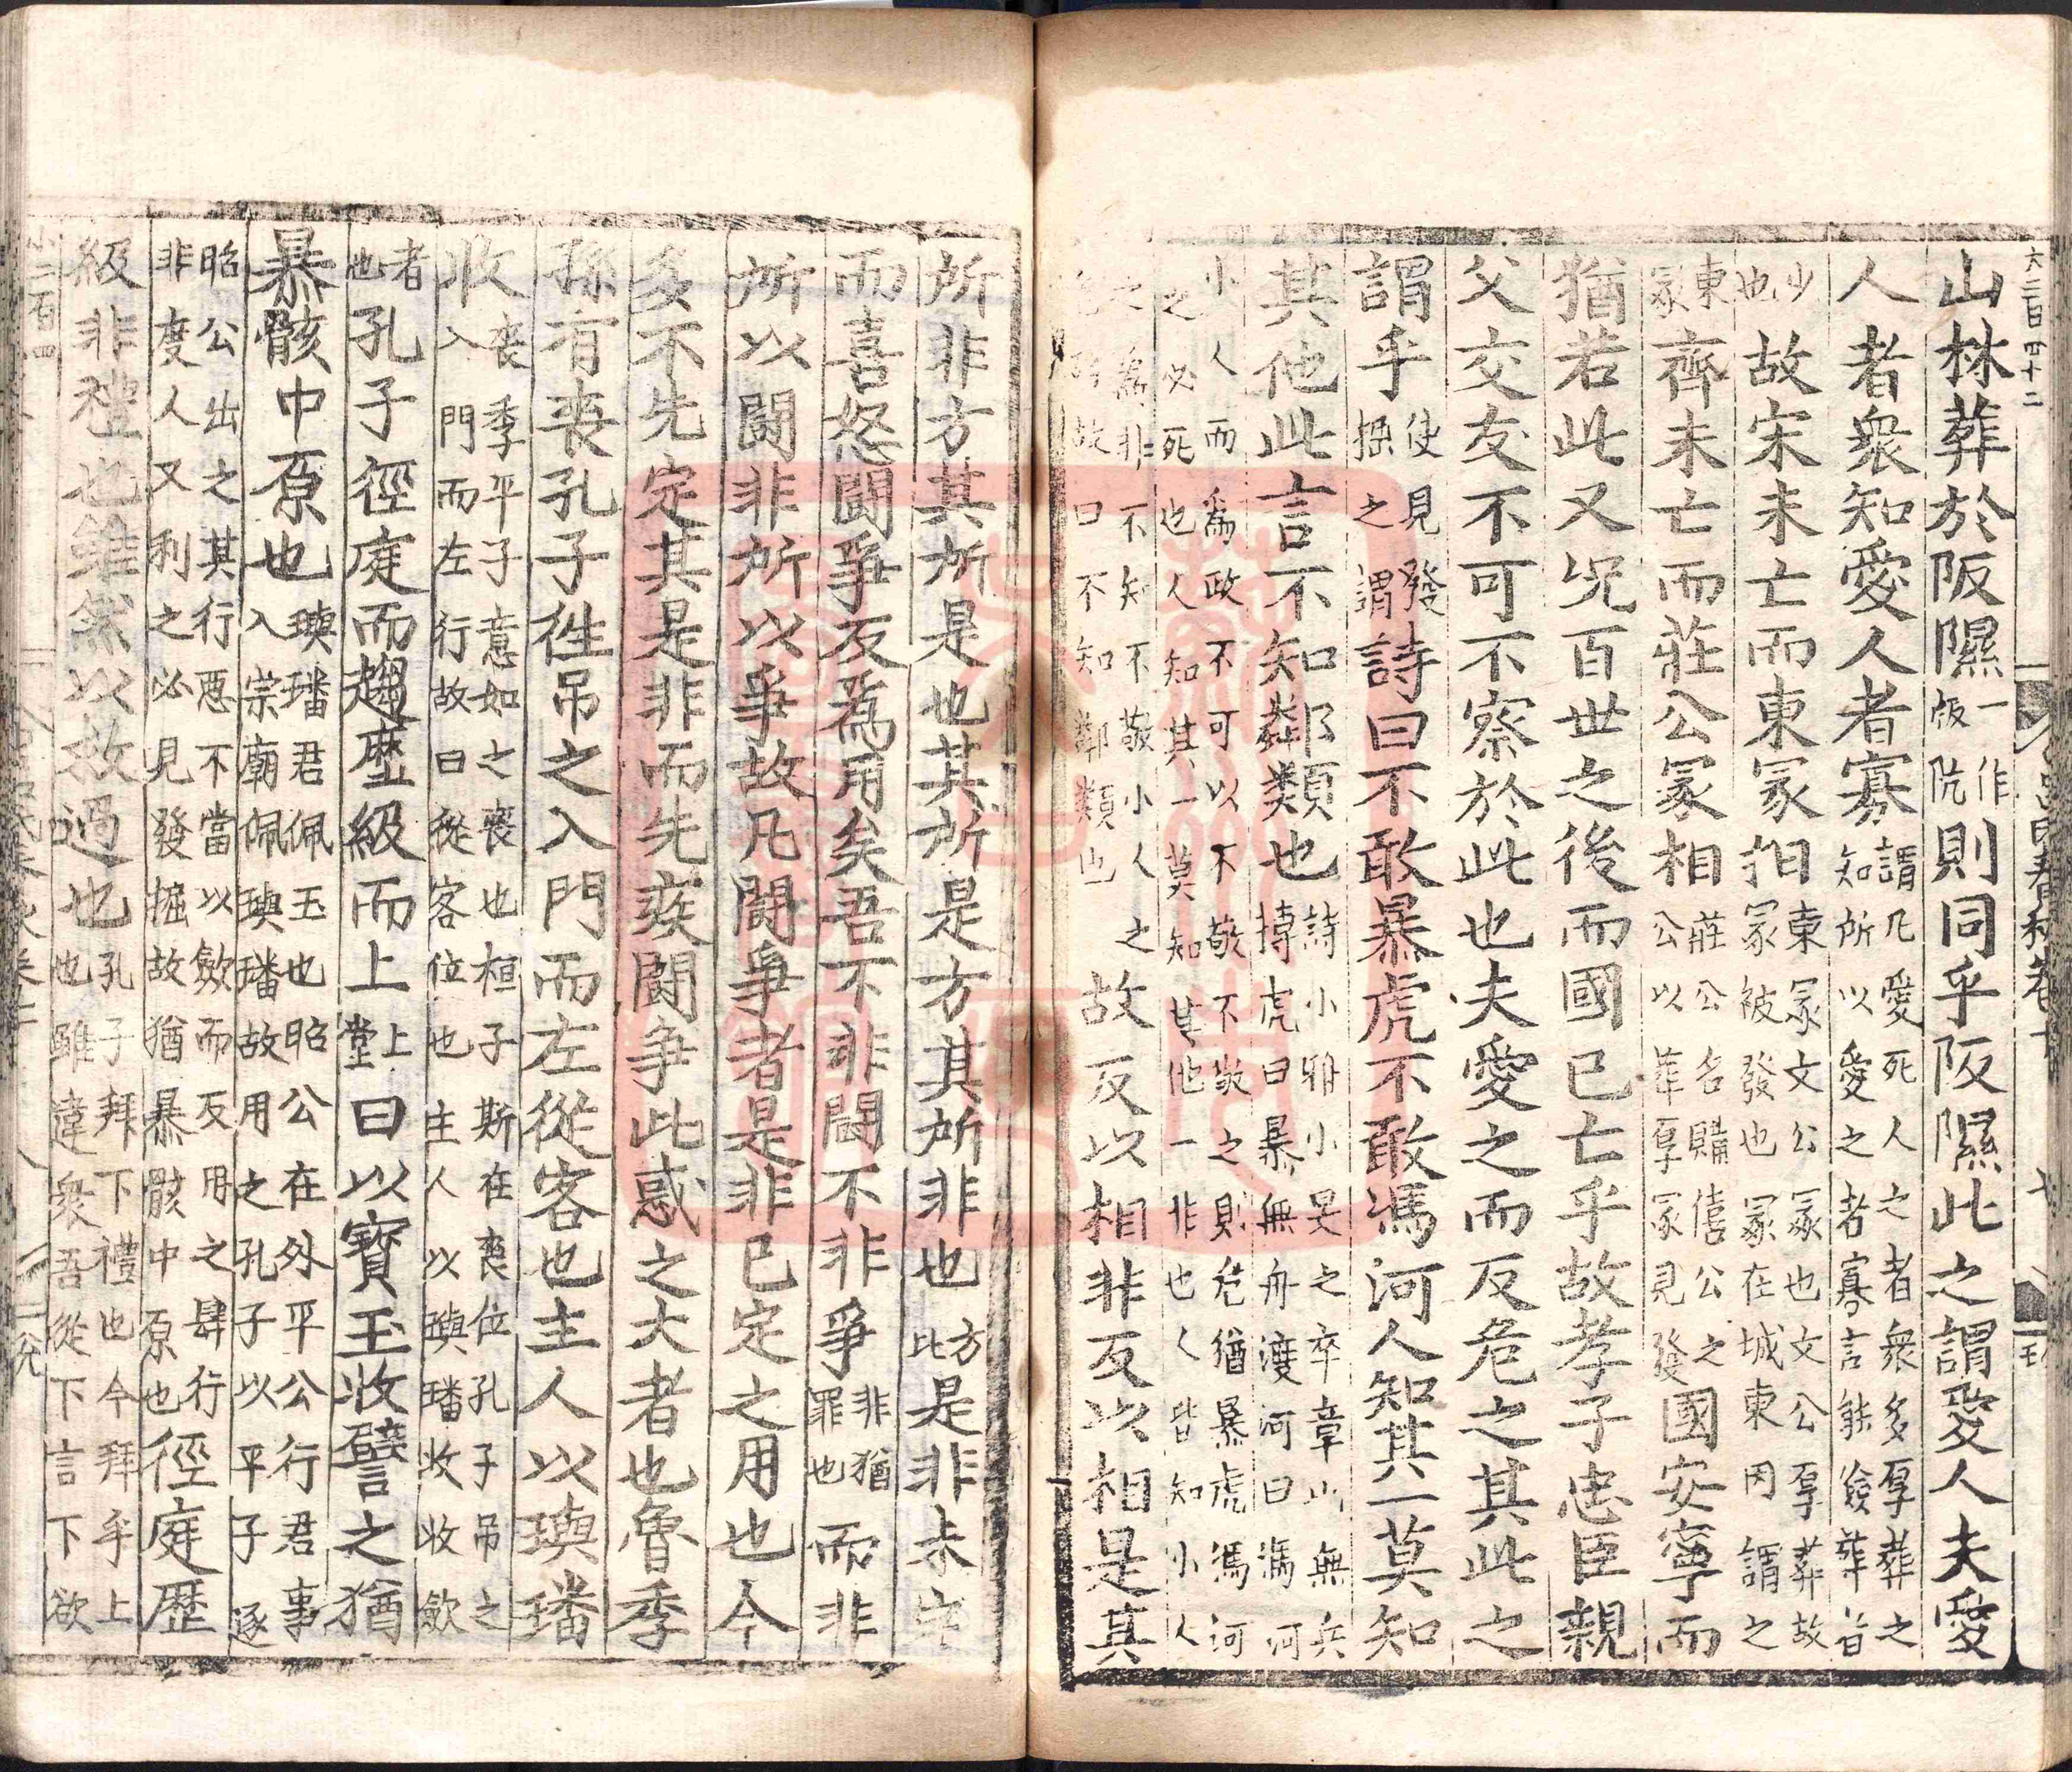 大二百四十二
山林葬於阪隰一作阪阬則同乎阪隰此之謂愛人夫愛
人者衆知愛人者寡謂凡愛死人之者衆多厚葬之知所以愛之者寡言能儉葬者
少也故宋未亡而東冢抇東冢文公冢也文公厚葬故冢被發也冢在城東因謂之
東冢齊未亡而莊公冢相莊公名購僖公之公以葬厚冢見發國安寧而
猶若此又況百世之後而國已亡乎故孝子忠臣親
父交友不可不察於此也夫愛之而反危之其此之
謂乎使見發掘之謂詩曰不敢暴虎不敢馮河人知其一莫知
其他此言不知鄰類也詩小雅小旻之卒章也無兵搏虎曰暴無舟渡河曰馮河
小人而爲政不可以不敬不敬之則危猶暴虎馮河之必死也人知其一莫知其他一非也人皆知小人
之爲非不知不敬小人之危殆故曰不知鄰類也故反以相非反以相是其
所非方其所是也其所是方其所非也方比是非未定
而喜怒鬭爭反爲用矣吾不非鬭不非爭非猶罪也而非
所以鬭非所以爭故凡鬭爭者是非已定之用也今
多不先定其是非而先疾鬭爭此惑之大者也魯季
孫有喪孔子徃吊之入門而左從客也主人以璵璠
收喪季平子意如之喪也桓子斯在喪位孔子吊之入門而左行故曰從客位也主人以璵璠收收斂
者也孔子徑庭而趨歷級而上上堂曰以寶玉收譬之猶
暴骸中原也璵璠君佩玉也昭公在外平公行君事入宗廟佩璵璠故用之孔子以平子逐
昭公出之其行惡不當以斂而反用之肆行非度人又利之必見發掘故猶暴骸中原也徑庭歷
級非禮也雖然以救過也孔子拜下禮也今拜乎上也雖違衆吾從下言下欲
小二百四